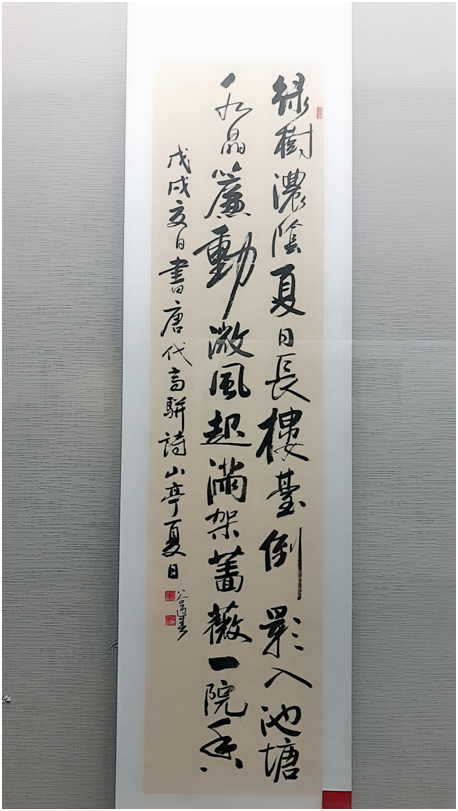 綠樹濃陰夏日長樓臺倒影入池塘
水晶簾動微風起滿架薔薇一院香
戊戌夏日書唐代高駢詩山亭夏日